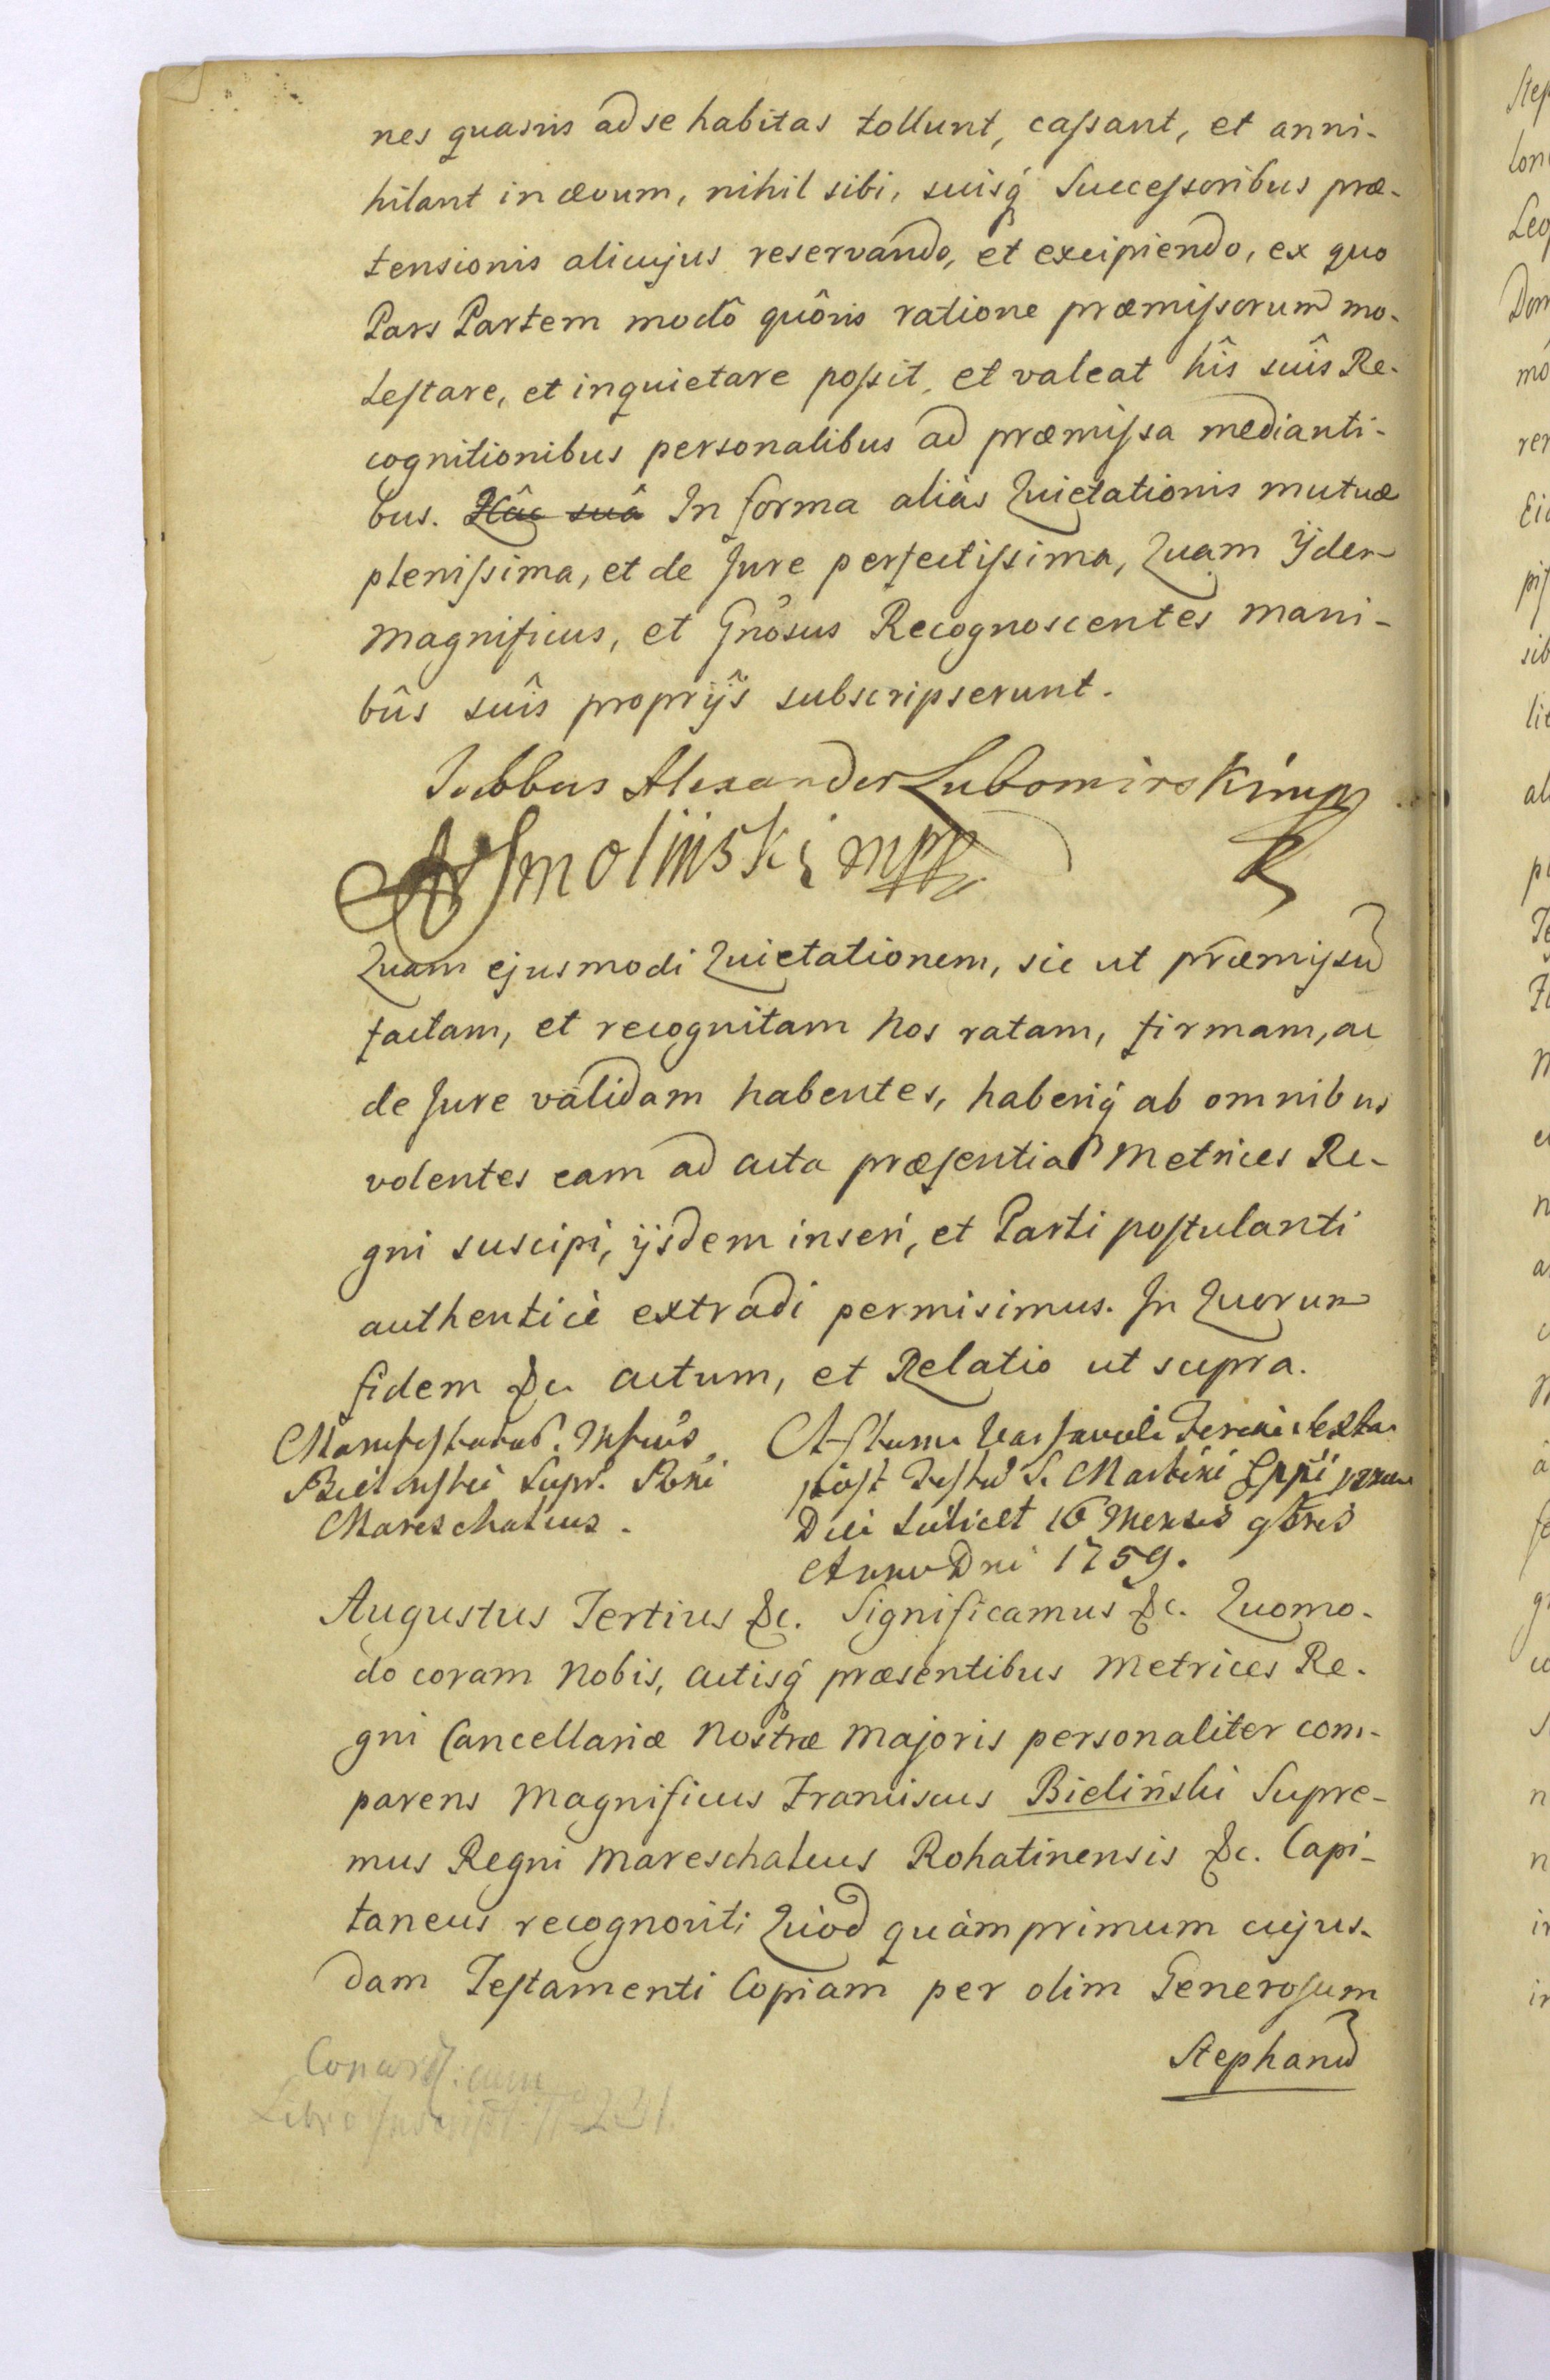 nes quasvis ad se habitas tollunt, caſsant, et anni-
hilant in ævum, nihil sibi, suisq́ Succeſsoribus præ-
tensionis alicujus reservando, et excipiendo, ex quo
Pars Partem modô quôvis ratione præmiſsorum mo-
leſtare, et inquietare poſsit, et valeat hîs suîs Re-
cognitionibus personalibus ad præmiſsa medianti-
bus. Hâc suâ In forma aliàs Quietationis mutuæ
pleniſsima, et de Jure perfectiſsima, Quam Ijdem
Magnificus, et Gnosus Recognoscentes mani-
bûs suîs proprijs subscripserunt.
Jacobus Alexander Lubomirski mp
Smoliński mpp
Quam ejusmodi Quietationem, sic ut præmiſsũ
factam, et recognitam Nos ratam, firmam, ac
de Jure validam habentes, haberiq́ ab omnibus
volentes eam ad acta præſentia Metrices Re-
gni suscipi, ijsdem inseri, et Parti poſtulanti
authenticè extradi permisimus. In Quorum
fidem &c. actum, et Relatio ut supra.
Bielinski Supr. Rni
Mareschalcus.
poſt S. Martini
16 Mensis 9bris
Anno Dni 1759.
Augustus Tertius &c. Significamus &c. Quomo-
do coram Nobis, actisq́ præsentibus Metrices Re-
gni Cancellariæ Nostræ Majoris personaliter com-
parens Magnificus Franciscus Bieliński Supre-
mus Regni Mareschalcus Rohatinensis &c. Capi-
taneus recognovit: Quod quàm primum cujus-
dam Teſtamenti Copiam per olim Generoſum
Stephanũ
Concord. cum
Libro